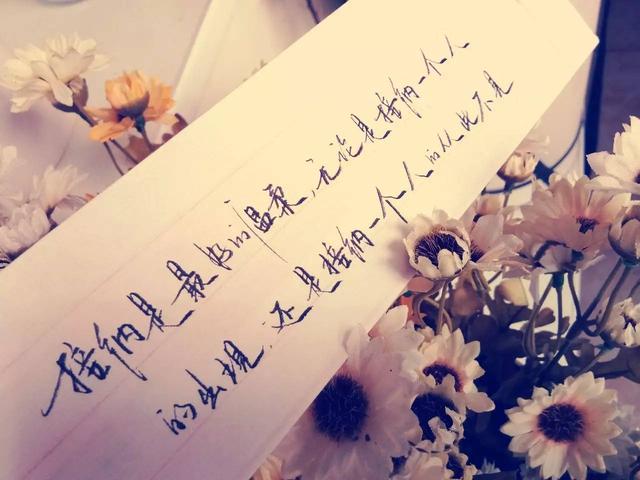 接纳是最好的温柔,无论是接纳一个人
的出现,还是接纳一个人的从此不见